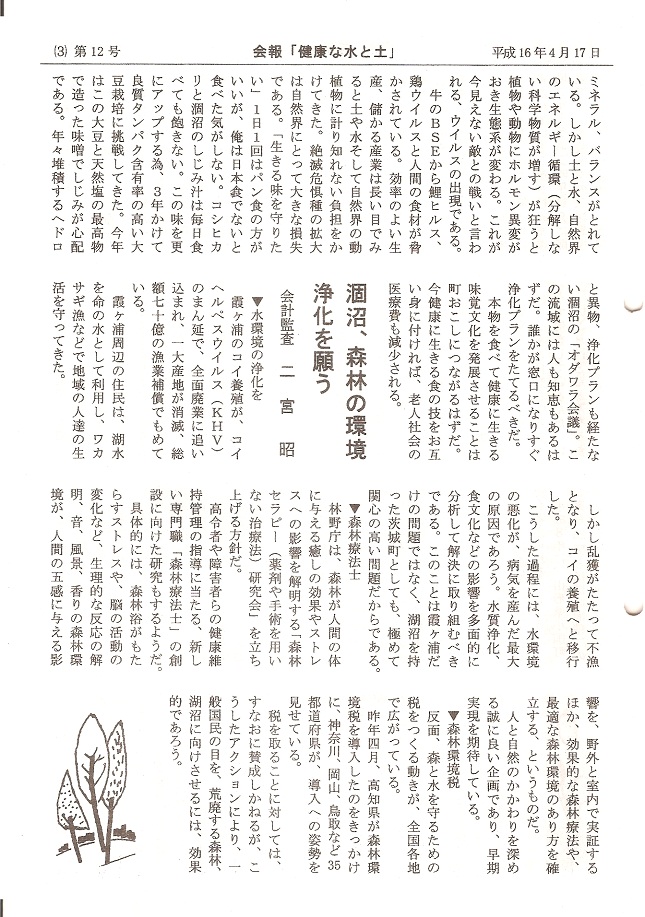 (3) 第12号
会報「健康な水と土」
平成16年4月17日
ミネラル、バランスがとれて
いる。しかし土と水、自然界
のエネルギー循環(分解しな
い科学物質が増す)が狂うと
植物や動物にホルモン異変が
おき生態系が変わる。これが
今見えない敵との戦いと言わ
れる、ウイルスの出現である。
牛のBSEから鯉ヒルス、
鶏ウイルスと人間の食材が脅
かされている。効率のよい生
産、儲かる産業は長い目でみ
ると土や水そして自然界の動
植物に計り知れない負担をか
けてきた。絶滅危惧種の拡大
は自然界にとって大きな損失
である。「生きる味を守りた
い」1日1回はパン食の方が
いいが、俺は日本食でないと
食べた気がしない。コシヒカ
リと涸沼のしじみ汁は毎日食
べても飽きない。この味を更
にアップする為、3年かけて
良質タンパク含有率の高い大
豆栽培に挑戦してきた。今年
はこの大豆と天然塩の最高物
で造った味噌でしじみが心配
である。年々堆積するヘドロ
と異物、浄化プランも経たな
い涸沼の「オダワラ会議」。こ
の流域には人も知恵もあるは
ずだ。誰かが窓口になりすぐ
浄化プランをたてるべきだ。
本物を食べて健康に生きる
味覚文化を発展させることは
町おこしにつながるはずだ。
今健康に生きる食の技をお互
い身に付ければ、老人社会の
医療費も減少される。
涸沼、森林の環境
浄化を願う
会計監査 二宮 昭
▼水環境の浄化を
霞ヶ浦のコイ養殖が、コイ
ヘルペスウイルス(KHV)
のまん延で、全面廃業に追い
込まれ、一大産地が消滅、総
額七十億の漁業補償でもめて
いる。
霞ヶ浦周辺の住民は、湖水
を命の水として利用し、ワカ
サギ漁などで地域の人達の生
活を守ってきた。
しかし乱獲がたたって不漁
となり、コイの養殖へと移行
した。
こうした過程には、水環境
の悪化が、病気を産んだ最大
の原因であろう。水質浄化、
食文化などの影響を多面的に
分析して解決に取り組むべき
である。このことは霞ヶ浦だ
けの問題ではなく、湖沼を持
った茨城町としても、極めて
関心の高い問題だからである。
▼森林療法士
林野庁は、森林が人間の体
に与える癒しの効果やストレ
スへの影響を解明する「森林
セラピー(薬剤や手術を用い
ない治療法)研究会」を立ち
上げる方針だ。
高令者や障害者らの健康維
持管理の指導に当たる、新し
い専門職「森林療法士」の創
設に向けた研究もするようだ。
具体的には、森林浴がもた
らすストレスや、脳の活動の
変化など、生理的な反応の解
明、音、風景、香りの森林環
境が、人間の五感に与える影
響を、野外と室内で実証する
ほか、効果的な森林療法や、
最適な森林環境のあり方を確
立する、というものだ。
人と自然のかかわりを深め
る誠に良い企画であり、早期
実現を期待している。
▼森林環境税
反面、森と水を守るための
税をつくる動きが、全国各地
で広がっている。
昨年四月、高知県が森林環
境税を導入したのをきっかけ
に、神奈川、岡山、鳥取など35
都道府県が、導入への姿勢を
見せている。
税を取ることに対しては、
すなおに賛成しかねるが、こ
うしたアクションにより、一
般国民の目を、荒廃する森林、
湖沼に向けさせるには、効果
的であろう。